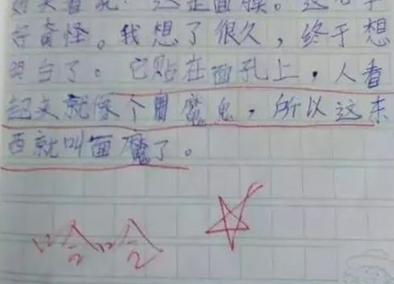 好奇怪。我想了很久，终于想
明白了。它贴在面孔上，人看
起文就像个魔鬼，所以这东
西就叫面魔了。
哈哈